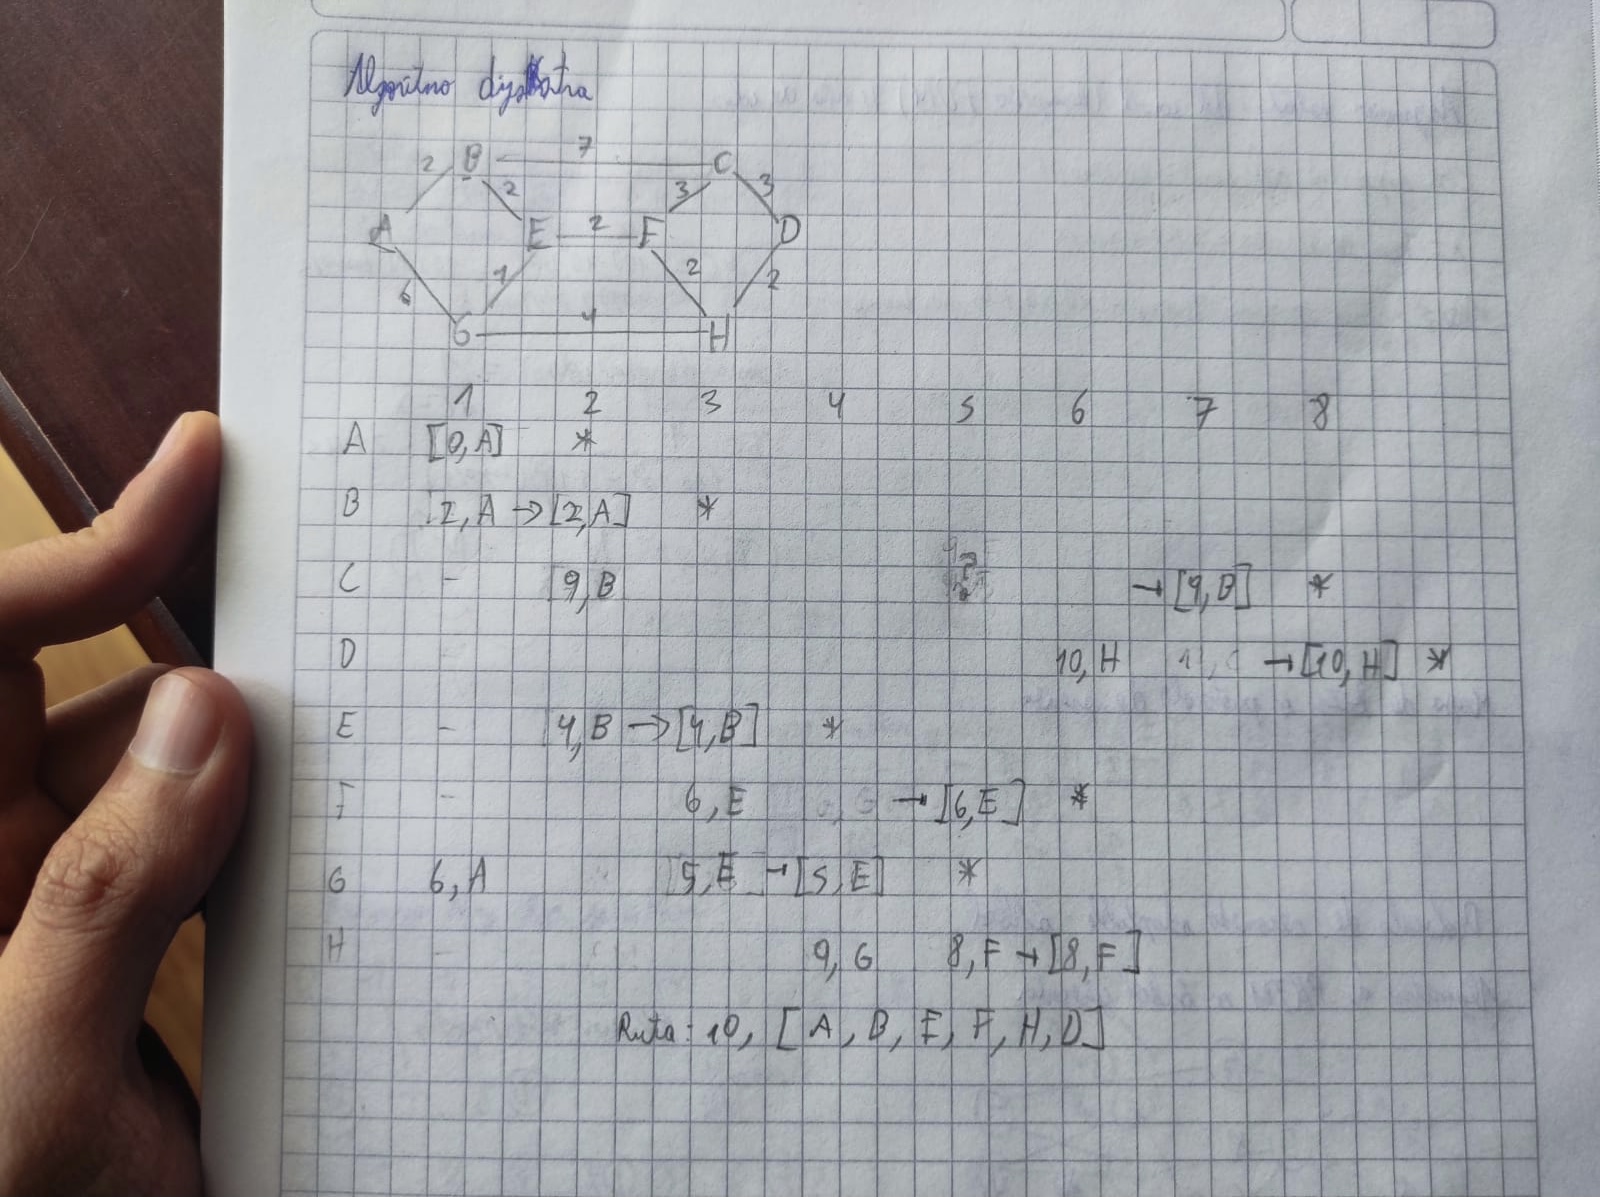 Algoritmo dijkstra
2 B 7 C
2 3 3
A E 2 F D
6 1 2 2
G 4 H
1 2 3 4 5 6 7 8
A [0,A] *
B [2,A → [2,A] *
C - [9,B → [9,B] *
D - 10,H → [10,H] *
E - [4,B → [4,B] *
F - 6,E → [6,E] *
G 6,A [5,E] → [5,E] *
H - 9,G 8,F → [8,F]
Ruta: 10, [A, B, E, F, H, D]